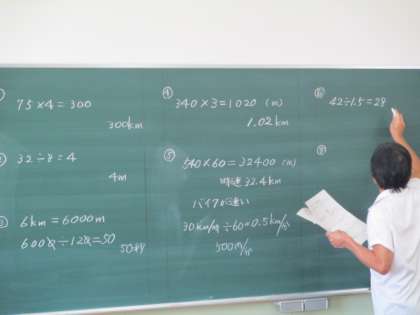 75×4=300
300km
② 32÷8=4
4m
③ 6km=6000m
6000÷120=50
50秒
④ 340×3=1020 (m)
1.02km
⑤ 540×60=32400 (m)
時速 32.4km
バイクが速い
30km/時÷60=0.5km/分
500m/分
⑥ 42÷1.5=28